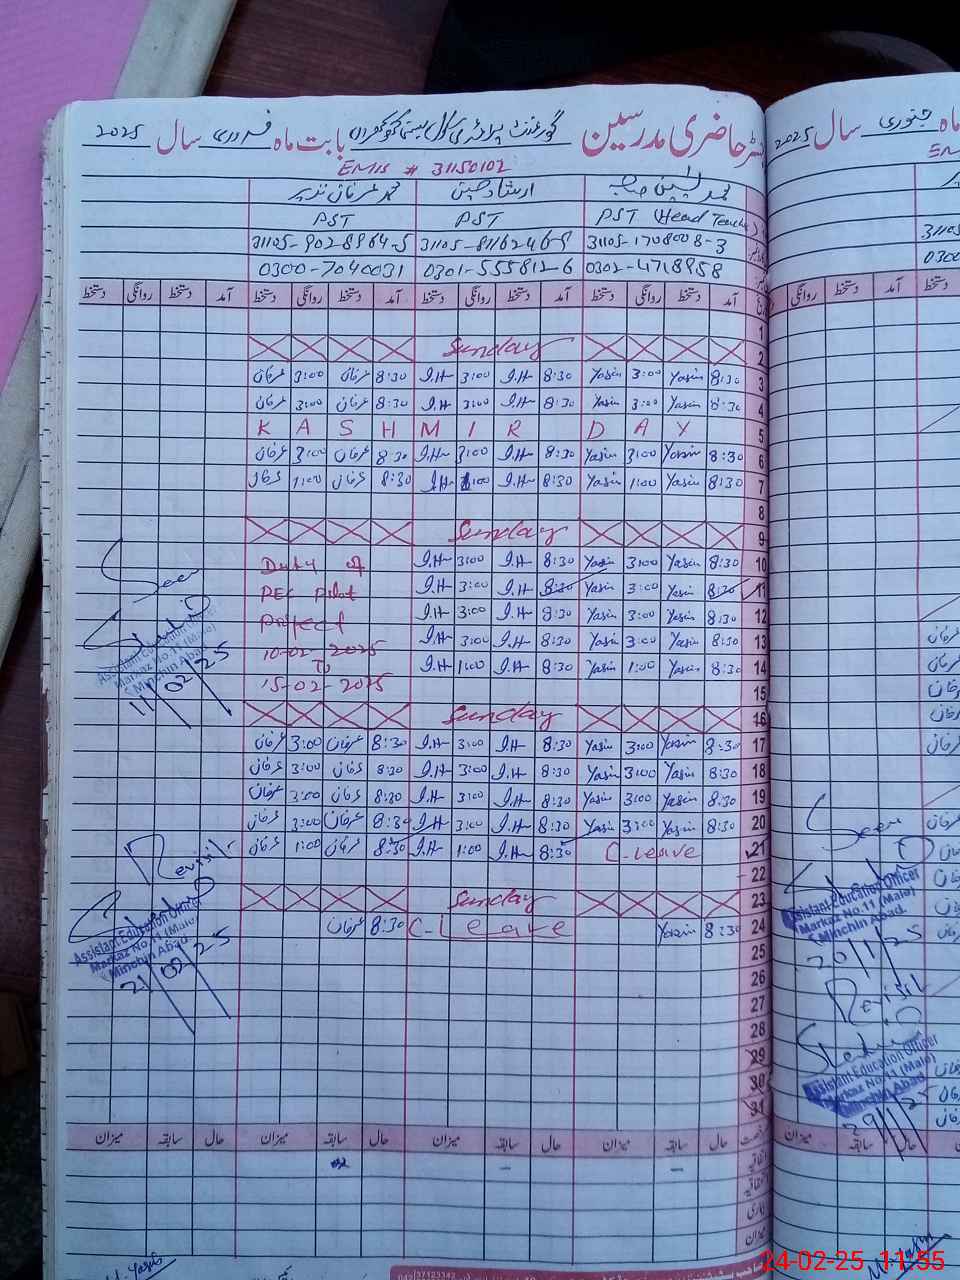 رجسٹر حاضری مدرسین گورنمنٹ پرائمری سکول بستی بابت ماہ فروری سال 2025
EMIS # 31150102
محمد یٰسین صاحب ارشاد حسین محمد عرفان نذیر
PST Head Teacher PST PST
31105-1708008-3 31105-8116246-9 31105-9028964-5
0302-4718958 0301-5558126 0300-7040031
آمد دستخط روانگی دستخط آمد دستخط روانگی دستخط آمد دستخط روانگی دستخط آمد دستخط روانگی دستخط
1
2 Sunday
3 8:30 Yasin 3:00 Yasin 8:30 I.H 3:00 I.H 8:30 عرفان 3:00 عرفان
4 8:30 Yasin 3:00 Yasin 8:30 I.H 3:00 I.H 8:30 عرفان 3:00 عرفان
5 KASHMIR DAY
6 8:30 Yasin 3:00 Yasin 8:30 I.H 3:00 I.H 8:30 عرفان 3:00 عرفان
7 8:30 Yasin 1:00 Yasin 8:30 I.H 1:00 I.H 8:30 عرفان 1:00 عرفان
8
9 Sunday
10 8:30 Yasin 3:00 Yasin 8:30 I.H 3:00 I.H Duty of
11 8:30 Yasin 3:00 Yasin 8:30 I.H 3:00 I.H PEC Pilot
12 8:30 Yasin 3:00 Yasin 8:30 I.H 3:00 I.H Project
13 8:30 Yasin 3:00 Yasin 8:30 I.H 3:00 I.H 10-02-2025
14 8:30 Yasin 1:00 Yasin 8:30 I.H 1:00 I.H To
15 15-02-2025
16 Sunday
17 8:30 Yasin 3:00 Yasin 8:30 I.H 3:00 I.H 8:30 عرفان 3:00 عرفان
18 8:30 Yasin 3:00 Yasin 8:30 I.H 3:00 I.H 8:30 عرفان 3:00 عرفان
19 8:30 Yasin 3:00 Yasin 8:30 I.H 3:00 I.H 8:30 عرفان 3:00 عرفان
20 8:30 Yasin 3:00 Yasin 8:30 I.H 3:00 I.H 8:30 عرفان 3:00 عرفان
21 C-Leave 8:30 I.H 1:00 I.H 8:30 عرفان 1:00 عرفان
22
23 Sunday
24 8:30 Yasin C-Leave 8:30 عرفان
25
26
27
28
29
30
31
حال سابقہ میزان حال سابقہ میزان حال سابقہ میزان حال سابقہ میزان
اتفاقیہ
میزان
Seen
Assistant Education Officer
Markaz No.11 (Male)
Minchin Abad
11/02/25
Revisit
Assistant Education Officer
Markaz No.11 (Male)
Minchin Abad.
21/02/25
ماہ جنوری سال 2025
31105
0300
آمد دستخط روانگی دستخط
Seen
Assistant Education Officer
Markaz No.11 (Male)
Minchin Abad.
20/1/25
Revisit
Assistant Education Officer
Markaz No.11 (Male)
Minchin Abad.
29/1/25
حال سابقہ میزان
24-02-25 11:55